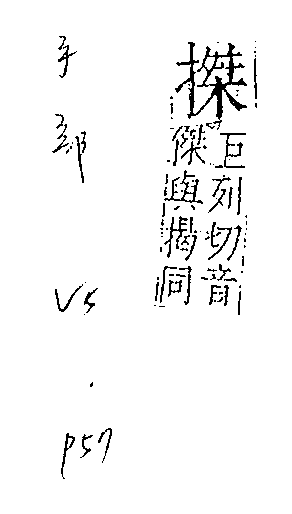 搩
巨列切音
傑與揭同
手部
V5
.
P57